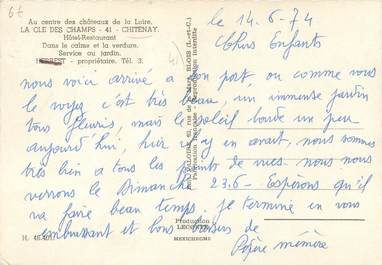 67
Au centre des châteaux de la Loire,
LA CLE DES CHAMPS - 41 - CHITENAY.
Hôtel-Restaurant
Dans le calme et la verdure.
Service au jardin.
HERBEST - propriétaire. Tél. 3.
le 14.6.74
Chers Enfants
nous voici arrivé a bon port, ou comme vous
le voyez c'est très beau, un immense jardin
tous fleuris, mais le soleil boude un peu
aujourd'hui, hier il y en avait, nous sommes
très bien a tous les points de vues nous nous
verrons le Dimanche 23.6 - Espérons qu'il
va faire beau temps, je termine en vous
embrassant et bons baisers de
Pépère mémère
41)
BLOIS (L.-et-C.)
Reproduction interdite
Production
LECONTE
MEXICHROME
H.